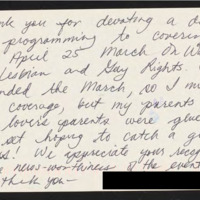 nk you for devoting a d
programming to coverin
April 25 March On W
Lesbian and Gay Rights.
nded the March, so I m
coverage, but my parents
lover's parents were glue
set hoping to catch a g
s! We appreciate your recog
e news-worthiness of the event
thank you—